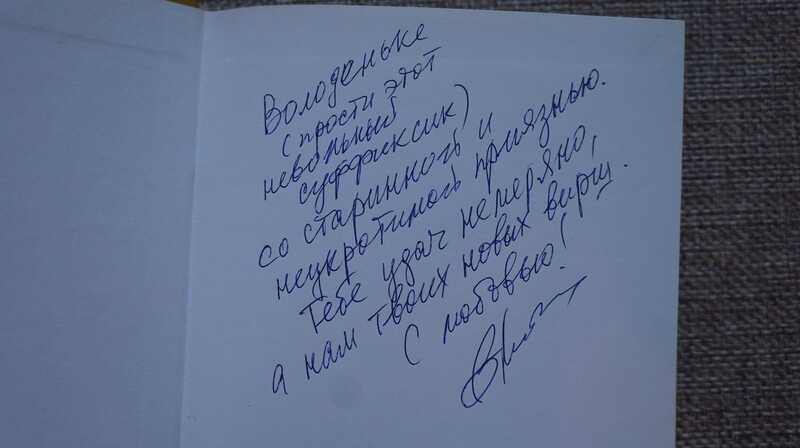 Володеньке
(прости этот
невольный
суффиксик)
со старинной и
неукротимой приязнью.
Тебе удач немеряно,
а нам твоих новых вирш.
С любовью!